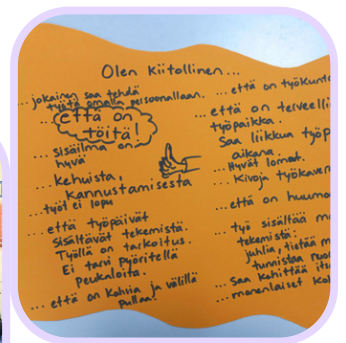 Olen Kiitollinen...
...jokainen saa tehdä
työtä omalla persoonallaan.
...että on
töitä!
... sisäilma on
hyvä
...kehuista,
kannustamisesta
...työt ei lopu
...että työpäivät
sisältävät tekemistä.
Työllä on tarkoitus.
Ei tarvi pyöritellä
peukaloita.
... että on kahvia ja välillä
pullaa.
... että on työkunto
... että on terveelli
työpaikka.
Saa liikkua työp
aikana.
... Hyvät lomat.
... Kivoja työkaver
... että on huumo
... työ sisältää mo
tekemistä:
juhlia, tietää m
tunnistaa
... Saa kehittää its
... monenlaiset